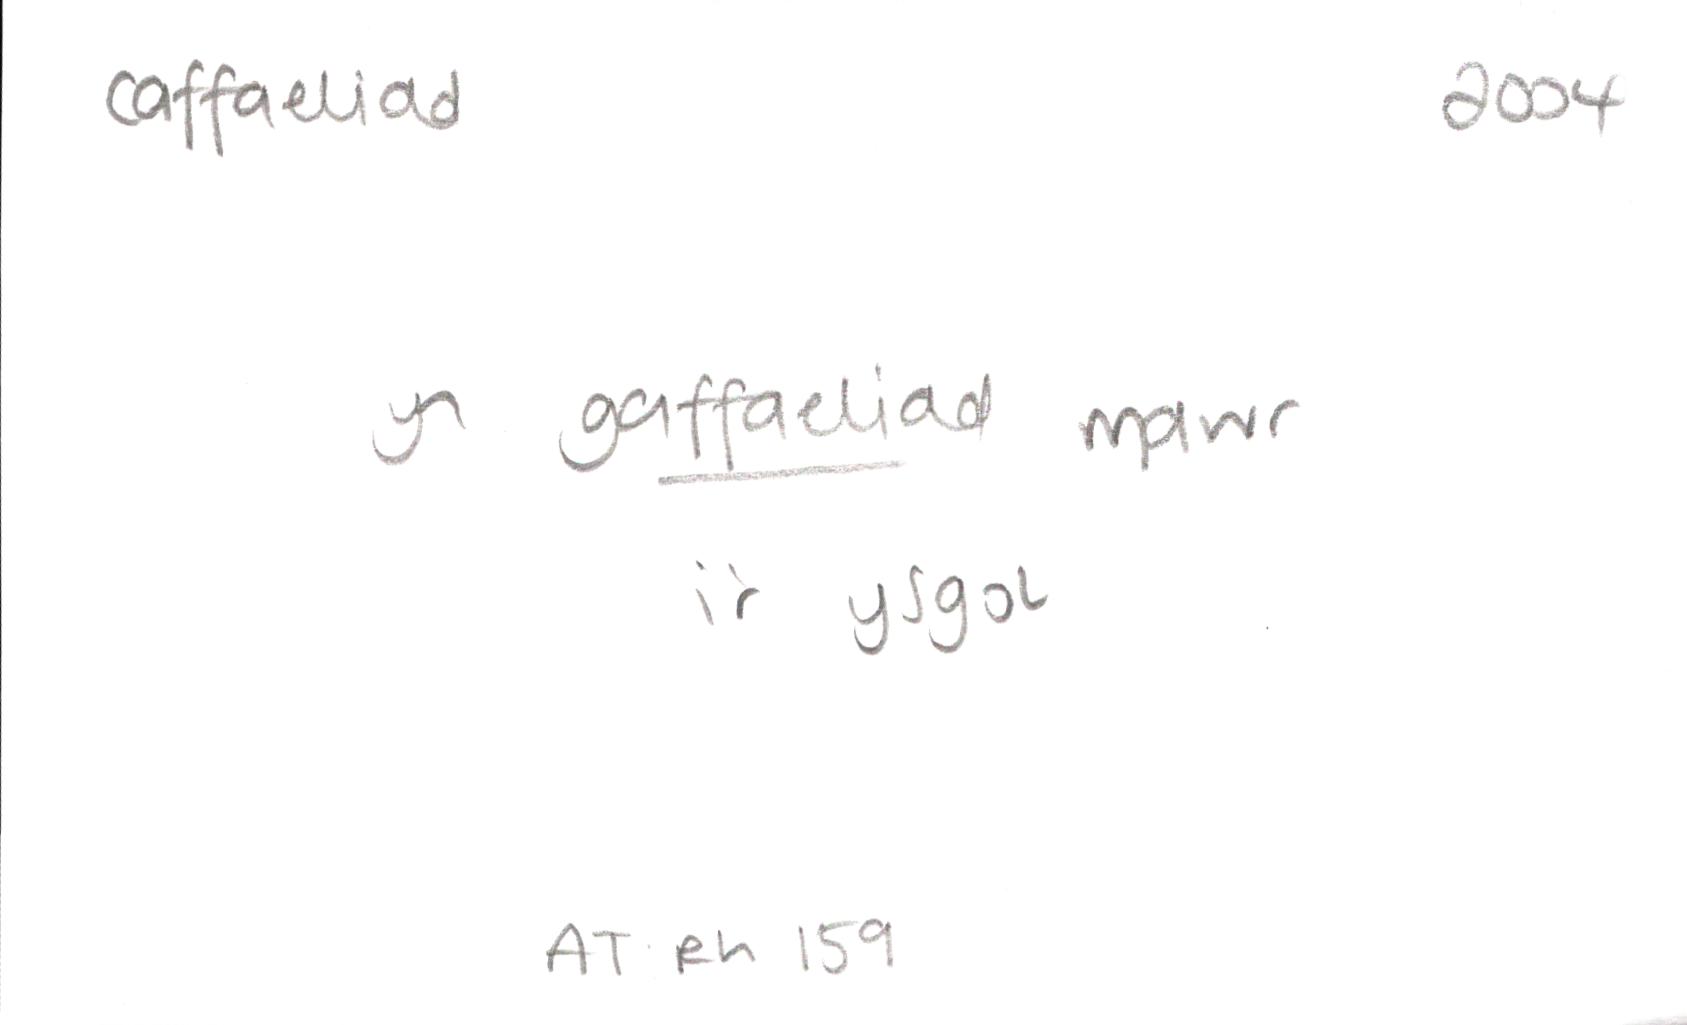 caffaeliad 2004
yn gaffaeliad mawr
i'r ysgol
AT: Rh 159